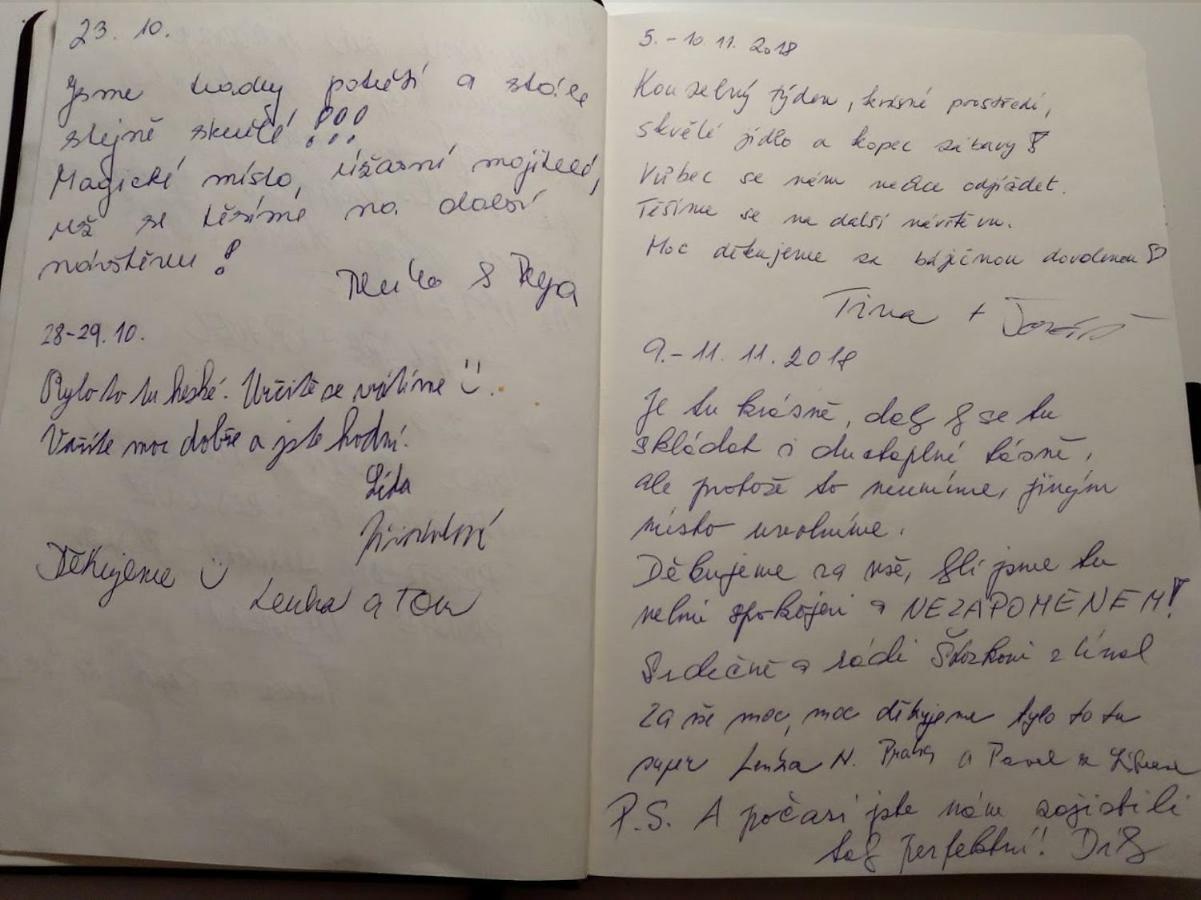 23. 10.
Jsme tady potřetí a stále
stejně skvělé!!!
Magické místo, úžasní majitelé,
už se těšíme na další
návštěvu!
28-29. 10.
Bylo to tu hezké. Určitě se vrátíme :).
Vaříte moc dobře a jste hodní.
Lída
Děkujeme :)
Lenka a Tom
5. - 10. 11. 2018
Kouzelný týden, krásné prostředí,
skvělé jídlo a kopec zábavy!
Vůbec se nám nechce odjíždět.
Těšíme se na další návštěvu.
Moc děkujeme za báječnou dovolenou
Tina +
9. - 11. 11. 2018
Je tu krásně, dal by se tu
skládat i duchaplné básně,
ale protože to neumíme, jiným
místo uvolníme.
Děkujeme za vše, byli jsme tu
velmi spokojeni a NEZAPOMENEM!
Srdečně a rádi z
Za vše moc, moc děkujeme bylo to tu
super Lenka N. Praha a Pavel
P.S. A počasí jste nám zajistili
tak perfektní! Dík